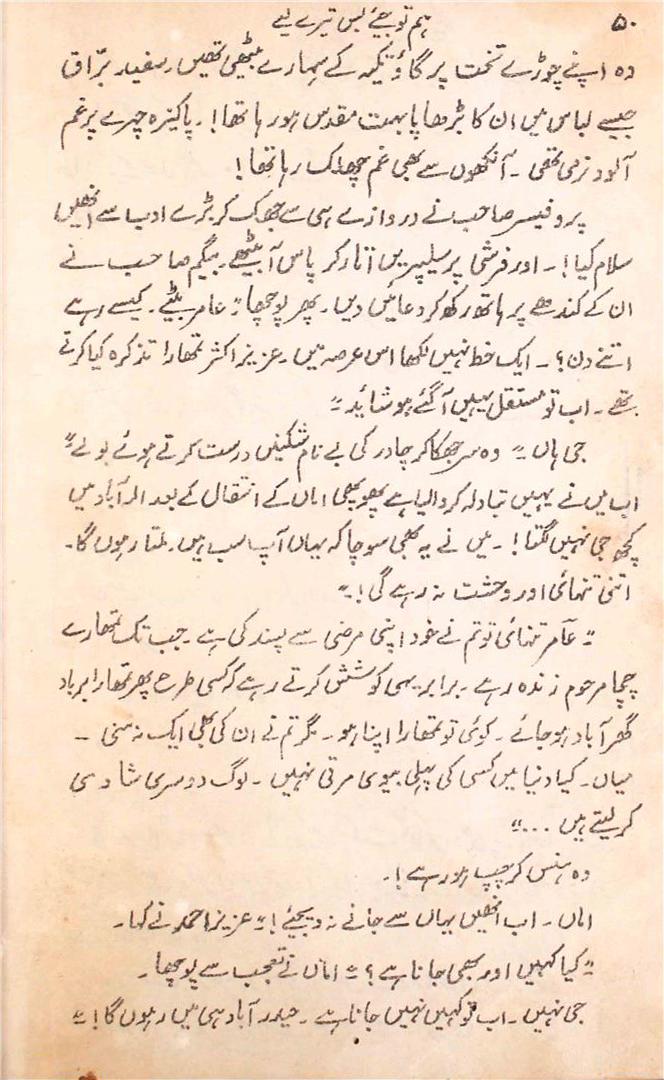 ۵۰
ہم تو جیئے بس تیرے لیے
وہ اپنے چوڑے تخت پر گاؤ تکیہ کے سہارے بیٹھی تھیں۔ سفید برّاق
جیسے لباس میں ان کا بڑھاپا بہت مقدس ہو رہا تھا!۔ پاکیزہ چہرے پر غم
آلود نرمی تھی۔ آنکھوں سے بھی غم چھلک رہا تھا!
پروفیسر صاحب نے دروازے ہی سے جھک کر بڑے ادب سے انھیں
سلام کیا!۔ اور فرشی پر سلیپریں اتار کر پاس آ بیٹھے۔ بیگم صاحب نے
ان کے کندھے پر ہاتھ رکھ کر دعائیں دیں۔ پھر پوچھا "عامر بیٹے۔ کیسے رہے
اتنے دن؟۔ ایک خط نہیں لکھا اس عرصہ میں۔ عزیز اکثر تمھارا تذکرہ کیا کرتے
تھے۔ اب تو مستقل یہیں آ گئے ہو شائد"
جی ہاں" وہ سر جھکا کر چادر کی بے نام شکنیں درست کرتے ہوئے بولے"
اب میں نے یہیں تبادلہ کروالیا ہے پھوپھی اماں کے انتقال کے بعد الہ آباد میں
کچھ جی نہیں لگتا!۔ میں نے یہ بھی سوچا کہ یہاں آپ سب ہیں۔ ملتا رہوں گا۔
اتنی تنہائی اور وحشت نہ رہے گی!۔"
"عامر تنہائی تو تم نے خود اپنی مرضی سے پسند کی ہے۔ جب تک تمھارے
چچا مرحوم زندہ رہے۔ برابر یہی کوشش کرتے رہے کہ کسی طرح پھر تمھارا برباد
گھر آباد ہو جائے۔ کوئی تو تمھارا اپنا ہو۔ مگر تم نے ان کی بھی ایک نہ سنی۔
میاں۔ کیا دنیا میں کسی کی پہلی بیوی مرتی نہیں۔ لوگ دوسری شادی
کر لیتے ہیں ..."
وہ ہنس کر چپ ہو رہے!۔
اماں۔ اب انھیں یہاں سے جانے نہ دیجئے!" عزیز احمد نے کہا۔
"کیا کہیں اور بھی جانا ہے؟" اماں نے تعجب سے پوچھا۔
جی نہیں۔ اب تو کہیں نہیں جانا ہے۔ حیدر آباد ہی میں رہوں گا!"